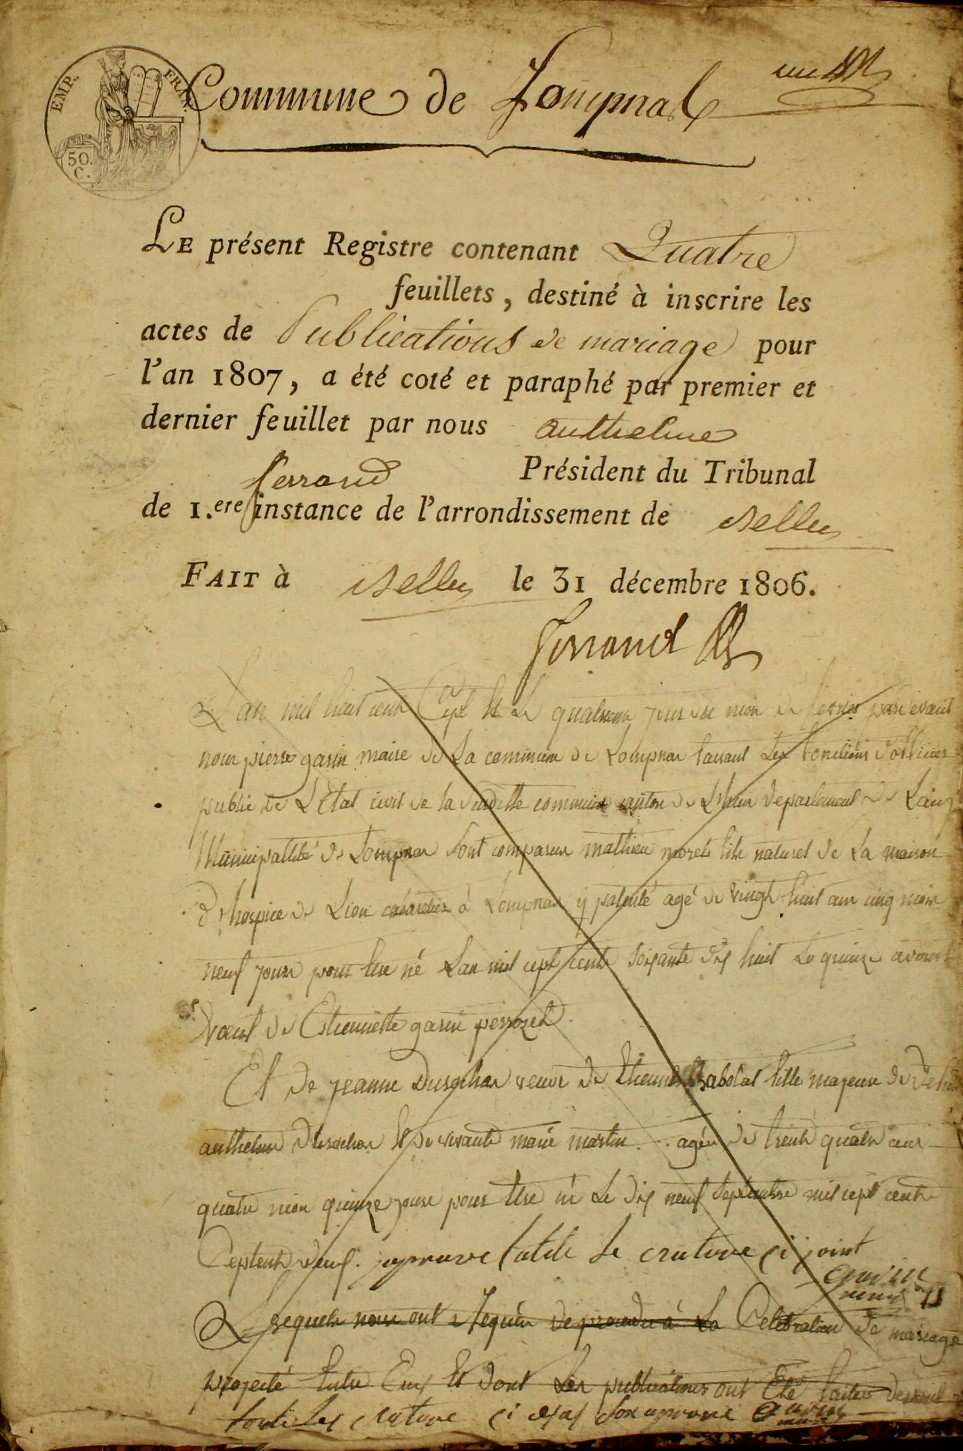 EMP. FRAN.
50. C.
Commune de Lompnas
un
LE présent Registre contenant Quatre
feuillets, destiné à inscrire les
actes de Publications de mariage pour
l'an 1807, a été coté et paraphé par premier et
dernier feuillet par nous anthelme
ferrand Président du Tribunal
de 1.ere instance de l'arrondissement de Belley
FAIT à Belley le 31 décembre 1806.
Ferrand
L'an mil huit cent Sept et le quatrieme jour du mois de fevrier pardevant
nous pierre garin maire de La commune de Lompnas faisant Les fonctions d'officier
public de L'Etat civil de la commune canton de departement de L'ain
Municipallité de Lompnas sont comparus mathieu morel fils naturel de La maison
D'hospice de Lion à Lompnas y patenté agé de vingt huit ans cinq mois
neuf jours pour être né Lan mil sept cents soixante dix huit Le quinze
veuf de Etiennette garin perrozet
Et de jeanne Durochas veuve de Etienne Rabolat fille majeure de
anthelme Durochas Et de vivante marie martin agée de trente quatre ans
quatre mois quinze jours pour être né Le dix neuf septembre mil sept cents
Septente deux. japrouve la ci joint
Lesquels nous ont Requis de proceder à La Celebration de mariage
projecté Entre Eux Et dont Les publications ont Eté faites
toutes les ci